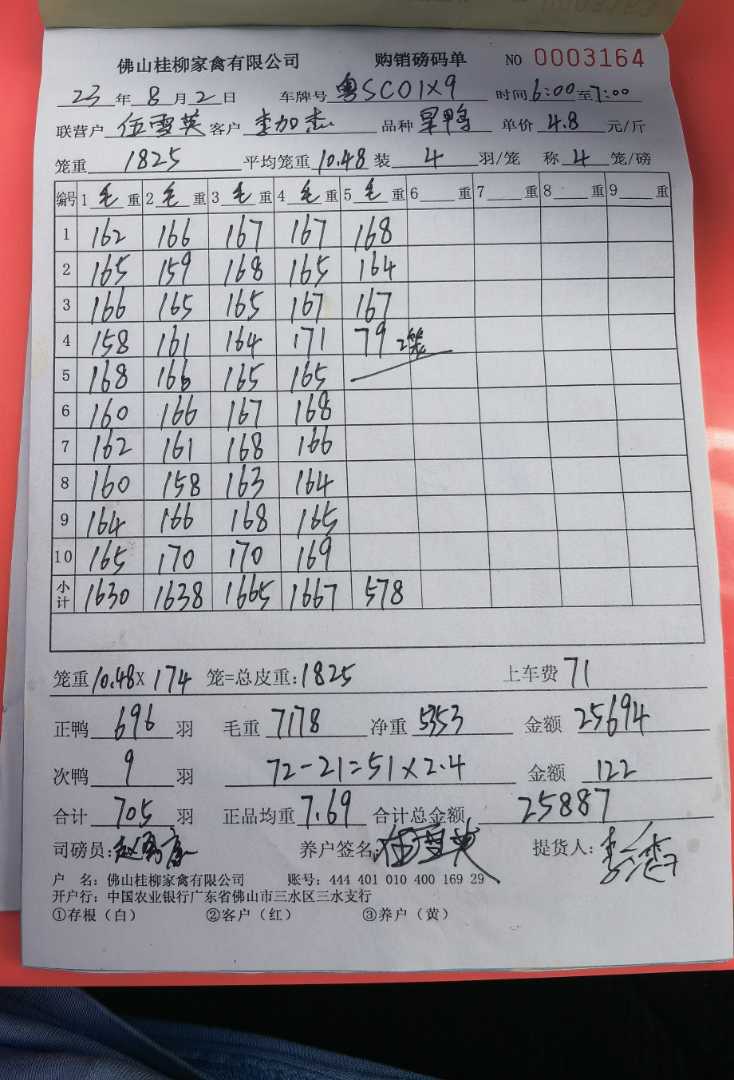 佛山桂柳家禽有限公司 购销磅码单 NO 0003164
23 年 8 月 2 日 车牌号 粤SC01X9 时间 6:00 至 7:00
联营户 伍雪英 客户 李加志 品种 旱鸭 单价 4.8 元/斤
笼重 1825 平均笼重 10.48 装 4 羽/笼 称 4 笼/磅
编号 1 毛 重 2 毛 重 3 毛 重 4 毛 重 5 毛 重 6 重 7 重 8 重 9 重
1 162 166 167 167 168
2 165 159 168 165 164
3 166 165 165 167 167
4 158 161 164 171 79 2笼
5 168 166 165 165
6 160 166 167 168
7 162 161 168 166
8 160 158 163 164
9 164 166 168 165
10 165 170 170 169
小计 1630 1638 1665 1667 578
笼重 10.48 X 174 笼=总皮重: 1825 上车费 71
正鸭 696 羽 毛重 7178 净重 5353 金额 25694
次鸭 9 羽 72-21=51×2.4 金额 122
合计 705 羽 正品均重 7.69 合计总金额 25887
司磅员: 养户签名 伍雪英 提货人:
户 名: 佛山桂柳家禽有限公司 账号: 444 401 010 400 169 29
开户行: 中国农业银行广东省佛山市三水区三水支行
①存根（白） ②客户（红） ③养户（黄）